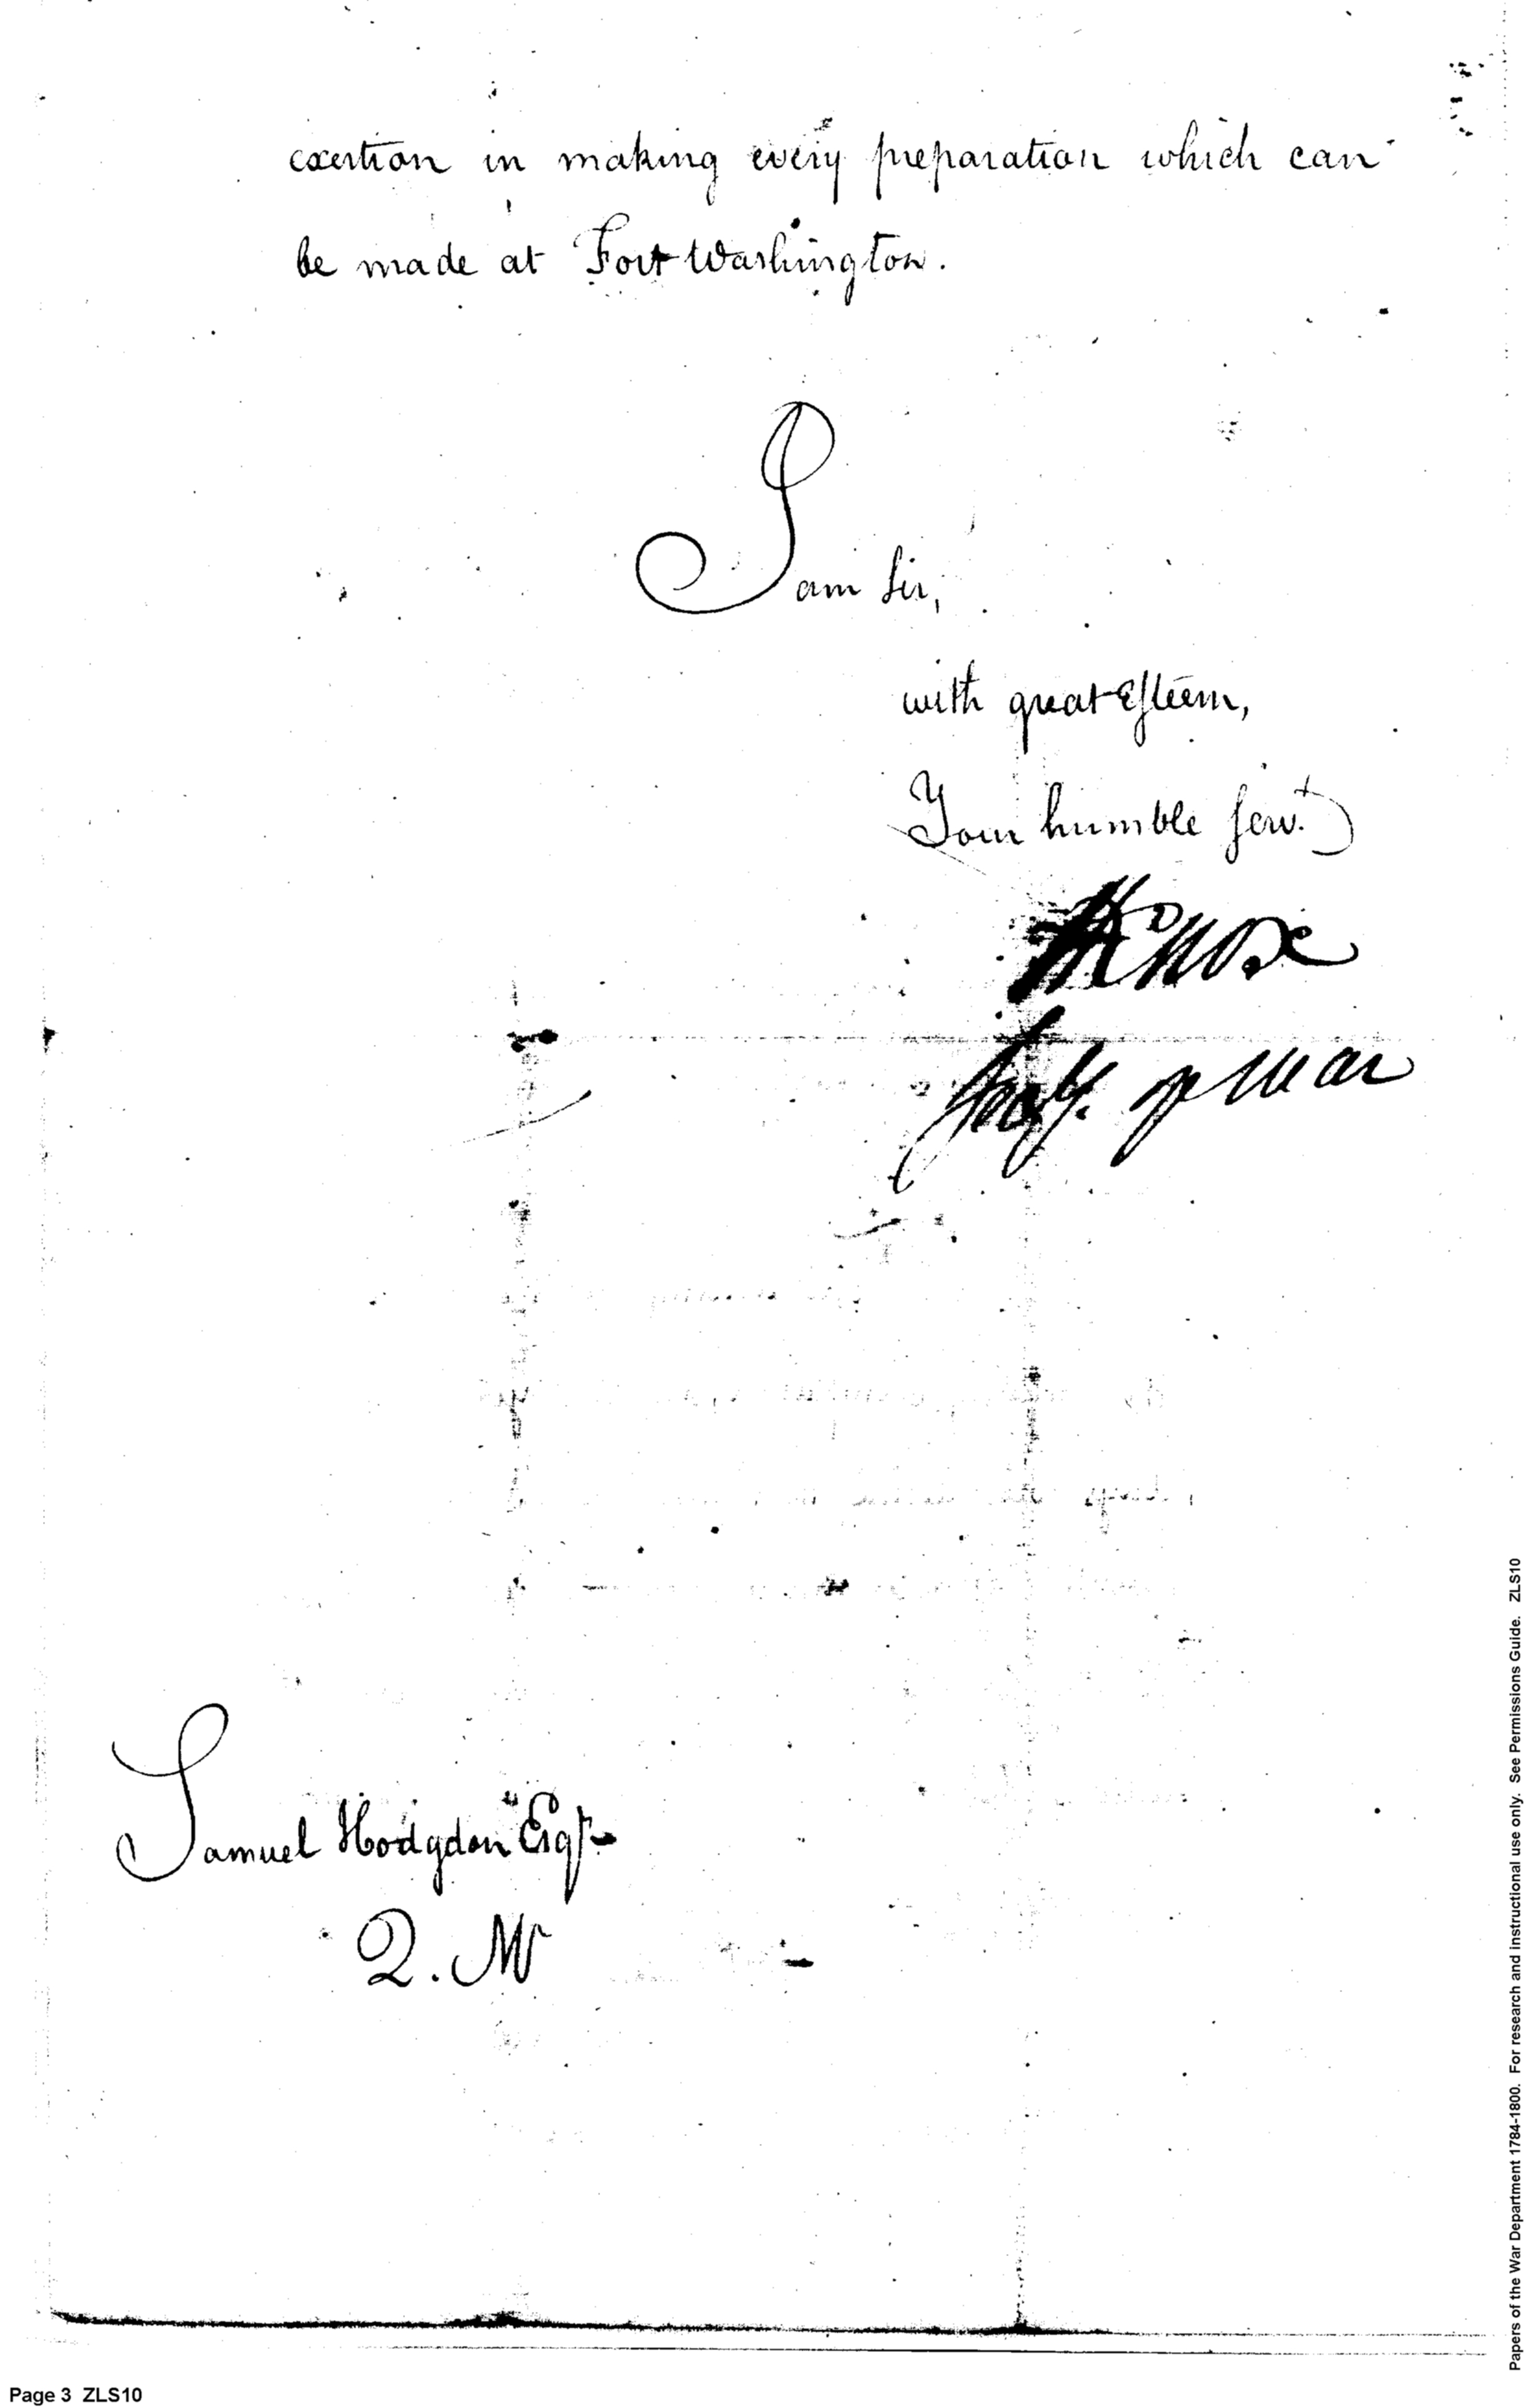 exertion in making every preparation which can
be made at Fort Washington.
I am Sir,
with great Esteem,
Your humble Servt
HKnox
Secy. of War
Samuel Hodgdon Esqr
Q. Mr
Page 3 ZLS10
Papers of the War Department 1784-1800. For research and instructional use only. See Permissions Guide. ZLS10